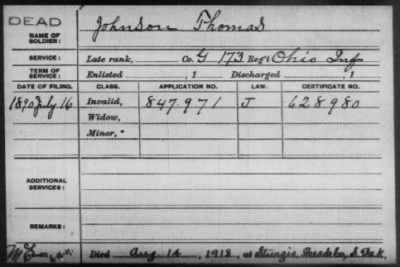 DEAD
NAME OF SOLDIER: Johnson Thomas
SERVICE: Late rank, Co. G 173 Reg't Ohio Inf
TERM OF SERVICE: Enlisted , 1 Discharged , 1
DATE OF FILING. CLASS. APPLICATION NO. LAW. CERTIFICATE NO.
1890 July 16 Invalid, 847971 J 628980
Widow,
Minor,
ADDITIONAL SERVICES:
REMARKS:
Died Aug. 14, 1918, at Sturgis, Meade Co, S. Dak,